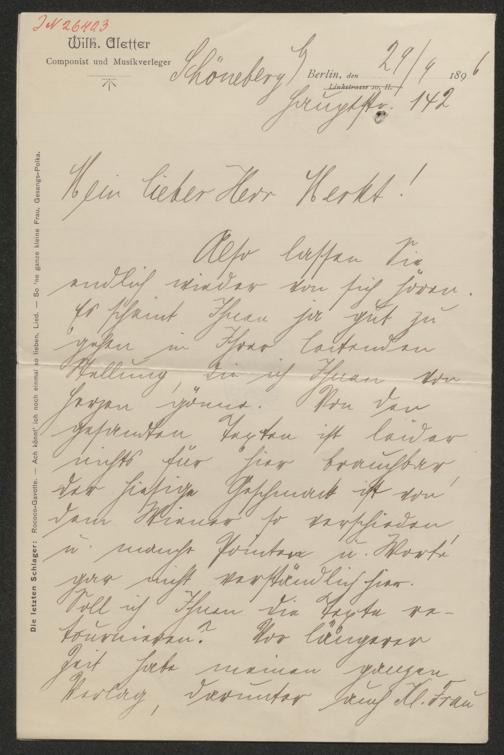 IN 26403
Wilh. Aletter
Componist und Musikverleger
Schöneberg b/ Berlin, den 29/9 1896
Linkstrasse 10, II.
Hauptstr. 142
Mein lieber Herr Merkt!
Also lassen Sie
endlich wieder von sich hören.
Es scheint Ihnen ja gut zu
gehen in Ihrer leitenden
Stellung, die ich Ihnen von
Herzen gönne. Von den
gesandten Texten ist leider
nichts für hier brauchbar,
der hiesige Geschmack ist von
dem Wiener so verschieden
u. manche Pointen u. Worte
gar nicht verständlich hier.
Soll ich Ihnen die Texte re-
tournieren? Vor längerer
Zeit habe meinen ganzen
Verlag, darunter auch Kl. Frau
Die letzten Schlager: Rococo-Gavotte. — Ach könnt' ich noch einmal so lieben, Lied. — So 'ne ganze kleine Frau, Gesangs-Polka.